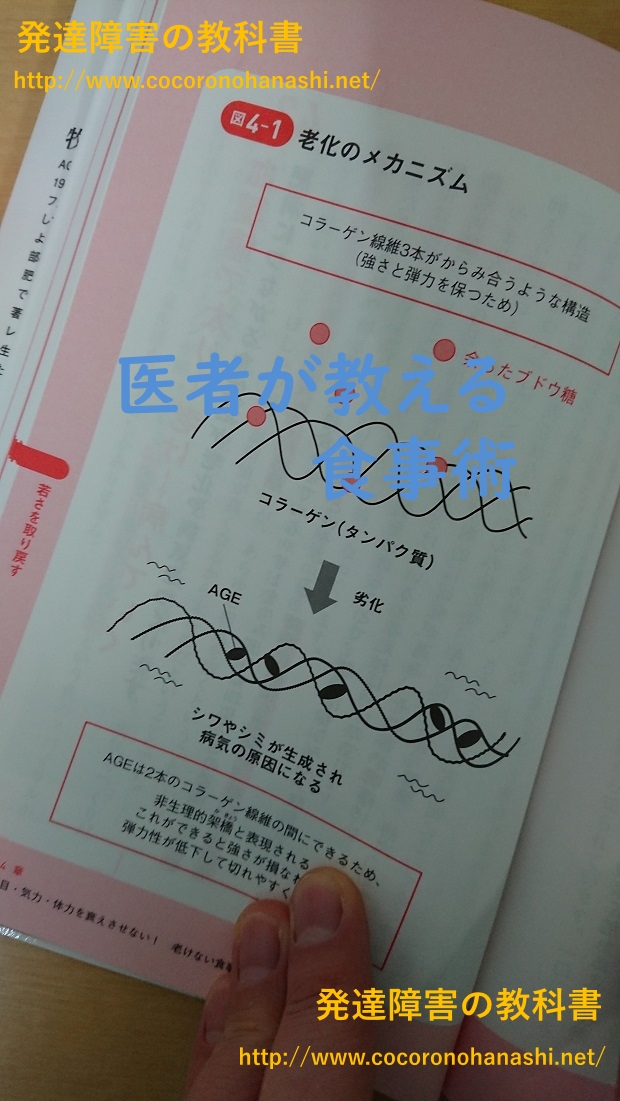 発達障害の教科書
http://www.cocoronohanashi.net/
図4-1 老化のメカニズム
コラーゲン線維3本がからみ合うような構造
(強さと弾力を保つため)
余ったブドウ糖
医者が教える
食事術
コラーゲン(タンパク質)
劣化
AGE
シワやシミが生成され
病気の原因になる
AGEは2本のコラーゲン線維の間にできるため、
非生理的架橋と表現される
これができると強さが損な
弾力性が低下して切れやすく
若さを取り戻す
4 章
目・気力・体力を衰えさせない! 老けない食事
発達障害の教科書
http://www.cocoronohanashi.net/